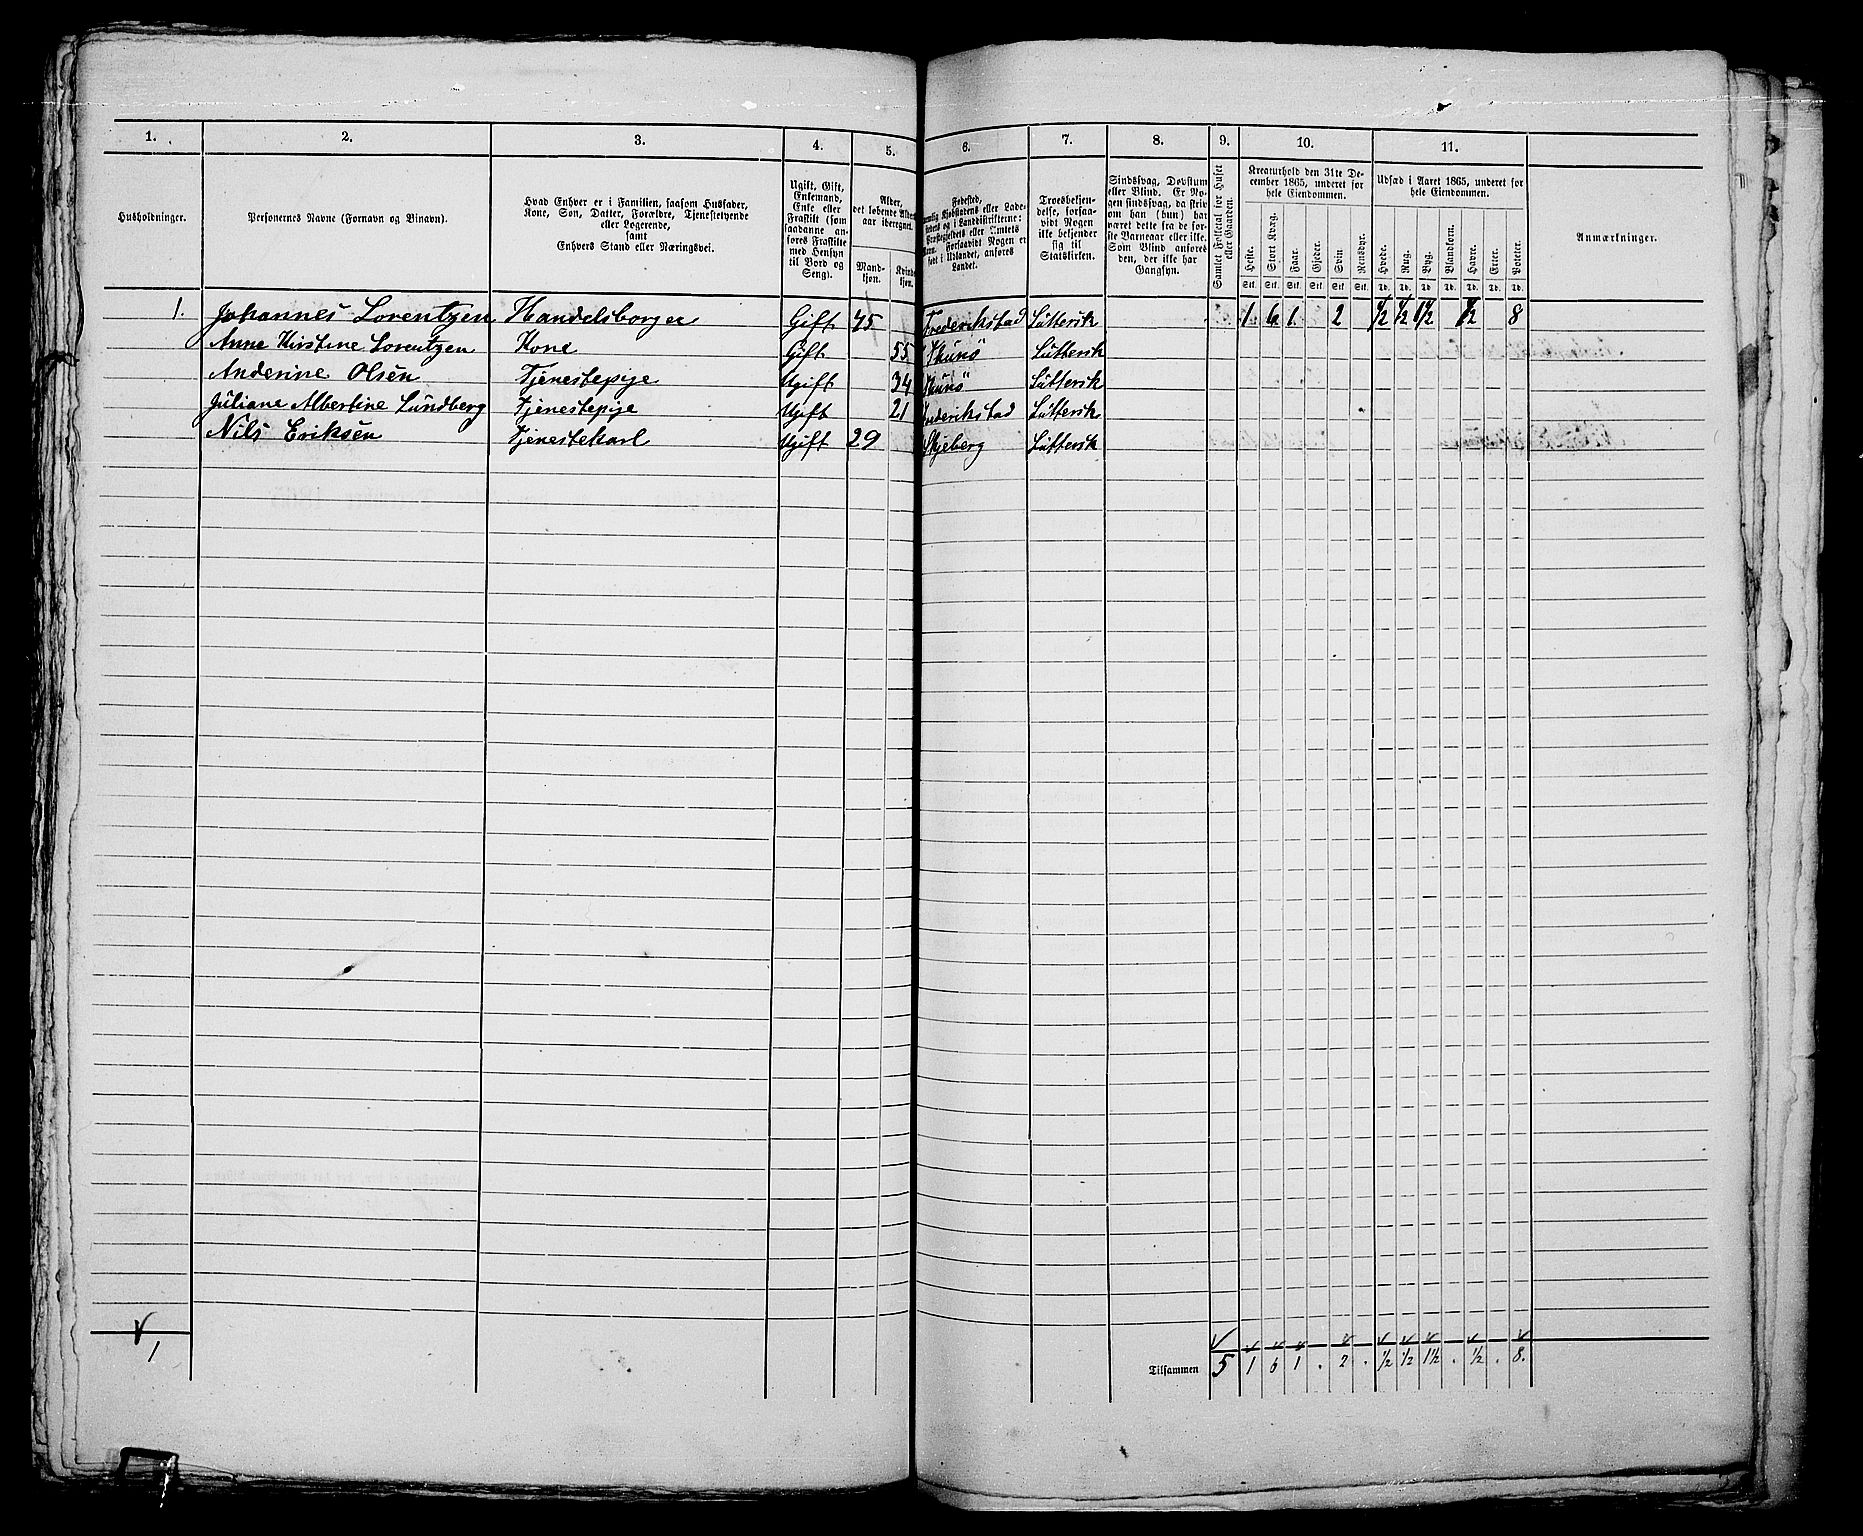 1. 2. 3. 4. 5. 6. 7. 8. 9. 10. 11.
Husholdninger.
Personernes Navne (Fornavn og Binavn).
Hvad Enhver er i Familien, saasom Husfader,
Kone, Søn, Datter, Forældre, Tjenestetyende
eller Logerende,
samt
Enhvers Stand eller Næringsvei.
Ugift, Gift,
Enkemand,
Enke eller
Fraskilt (som
saadanne an-
føres Fraskilte
med Hensyn
til Bord og
Seng).
Alder,
det løbende Alders-
aar iberegnet.
Mand-
kjøn.
Kvinde-
kjøn.
Fødested,
Byens og i Landdistrikterne:
Præstegjeldets eller Amtets
Navn. Forsaavidt Nogen er
født i Udlandet, anføres
Landet.
Troesbekjen-
delse, forsaa-
vidt Nogen
ikke bekjender
sig til
Statskirken.
Sindssvag, Døvstum
eller Blind. Er No-
gen sindssvag, da skriv
om han (hun) har
været dette fra de før-
ste Barneaar eller ikke.
Som Blind anføres
den, der ikke har
Gangsyn.
Samlet Folketal for Huset
eller Gaarden.
Kreaturhold den 31te De-
cember 1865, underet for
hele Eiendommen.
Heste. Stort Kvæg. Faar. Gjeder. Svin Rensdyr.
Stk. Stk. Stk. Stk. Stk. Stk.
Udsæd i Aaret 1865, underet for
hele Eiendommen.
Hvede. Rug. Byg. Blandkorn. Havre. Erter. Poteter.
Td. Td. Td. Td. Td. Td. Td.
Anmærkninger.
1. Johannes Lorentzen Handelsborger Gift 45 Frederikstad Lûttersk 1 6 1 2 ½ ½ 1½ ½ 8
Anne Kirstine Lorentzen Kone Gift 55 Lûttersk
Anderine Olsen Tjenestepige Ugift 34 Lûttersk
Juliane Albertine Lundberg Tjenestepige Ugift 21 Frederikstad Lûttersk
Nils Eriksen Tjenestekarl Ugift 29 Skjeberg Lûttersk
1
Tilsammen 5 1 6 1 . 2 . ½ ½ 1½ . ½ . 8.